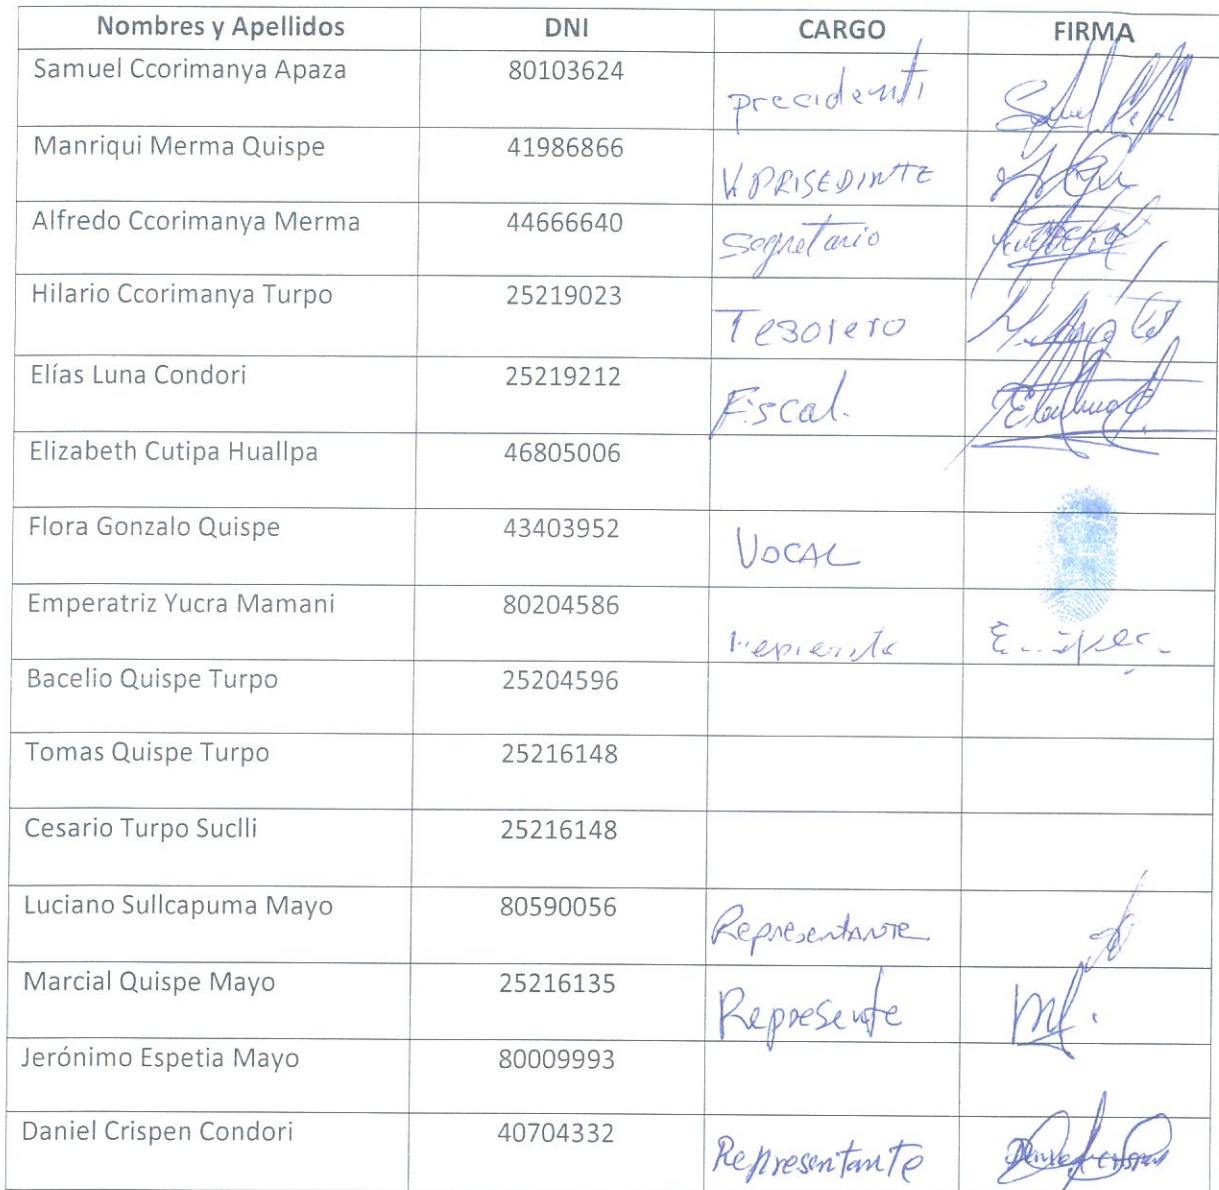 Nombres y Apellidos DNI CARGO FIRMA
Samuel Ccorimanya Apaza 80103624 precidenti
Manriqui Merma Quispe 41986866 V. PRISEDINTE
Alfredo Ccorimanya Merma 44666640 Segretario
Hilario Ccorimanya Turpo 25219023 Tesorero
Elías Luna Condori 25219212 Fiscal.
Elizabeth Cutipa Huallpa 46805006
Flora Gonzalo Quispe 43403952 VOCAL
Emperatriz Yucra Mamani 80204586
Bacelio Quispe Turpo 25204596
Tomas Quispe Turpo 25216148
Cesario Turpo Suclli 25216148
Luciano Sullcapuma Mayo 80590056 Representante
Marcial Quispe Mayo 25216135 Represente
Jerónimo Espetia Mayo 80009993
Daniel Crispen Condori 40704332 Representante